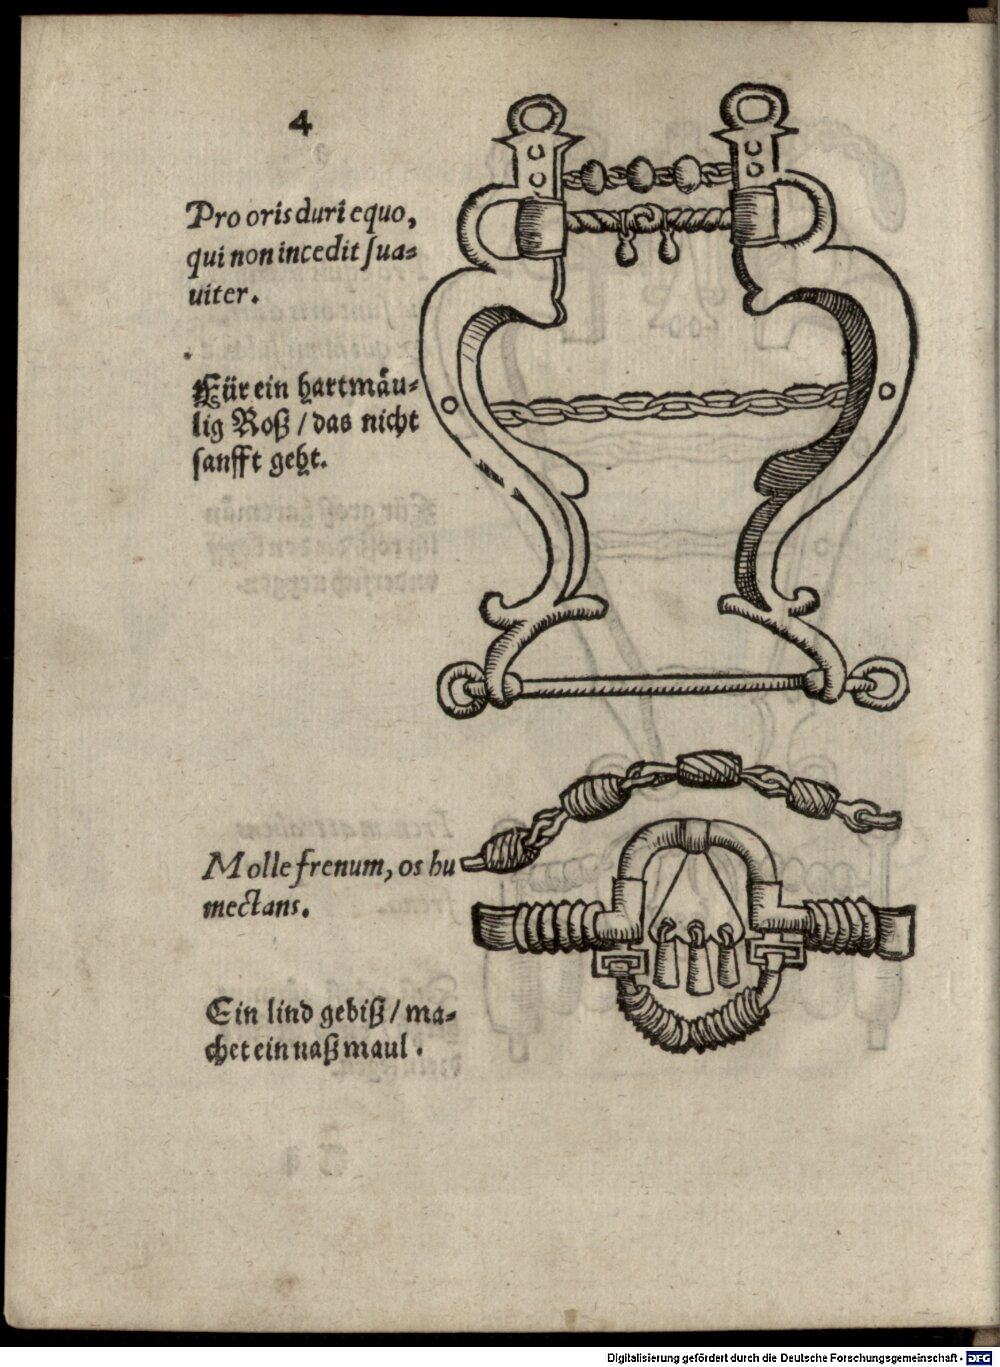 4
Pro oris duri equo,
qui non incedit sua⸗
uiter.
Für ein hartmäu⸗
lig Roß / das nicht
sanfft geht.
Molle frenum, os hu
mectans.
Ein lind gebiß / ma⸗
chet ein naß maul.
Digitalisierung gefördert durch die Deutsche Forschungsgemeinschaft - DFG